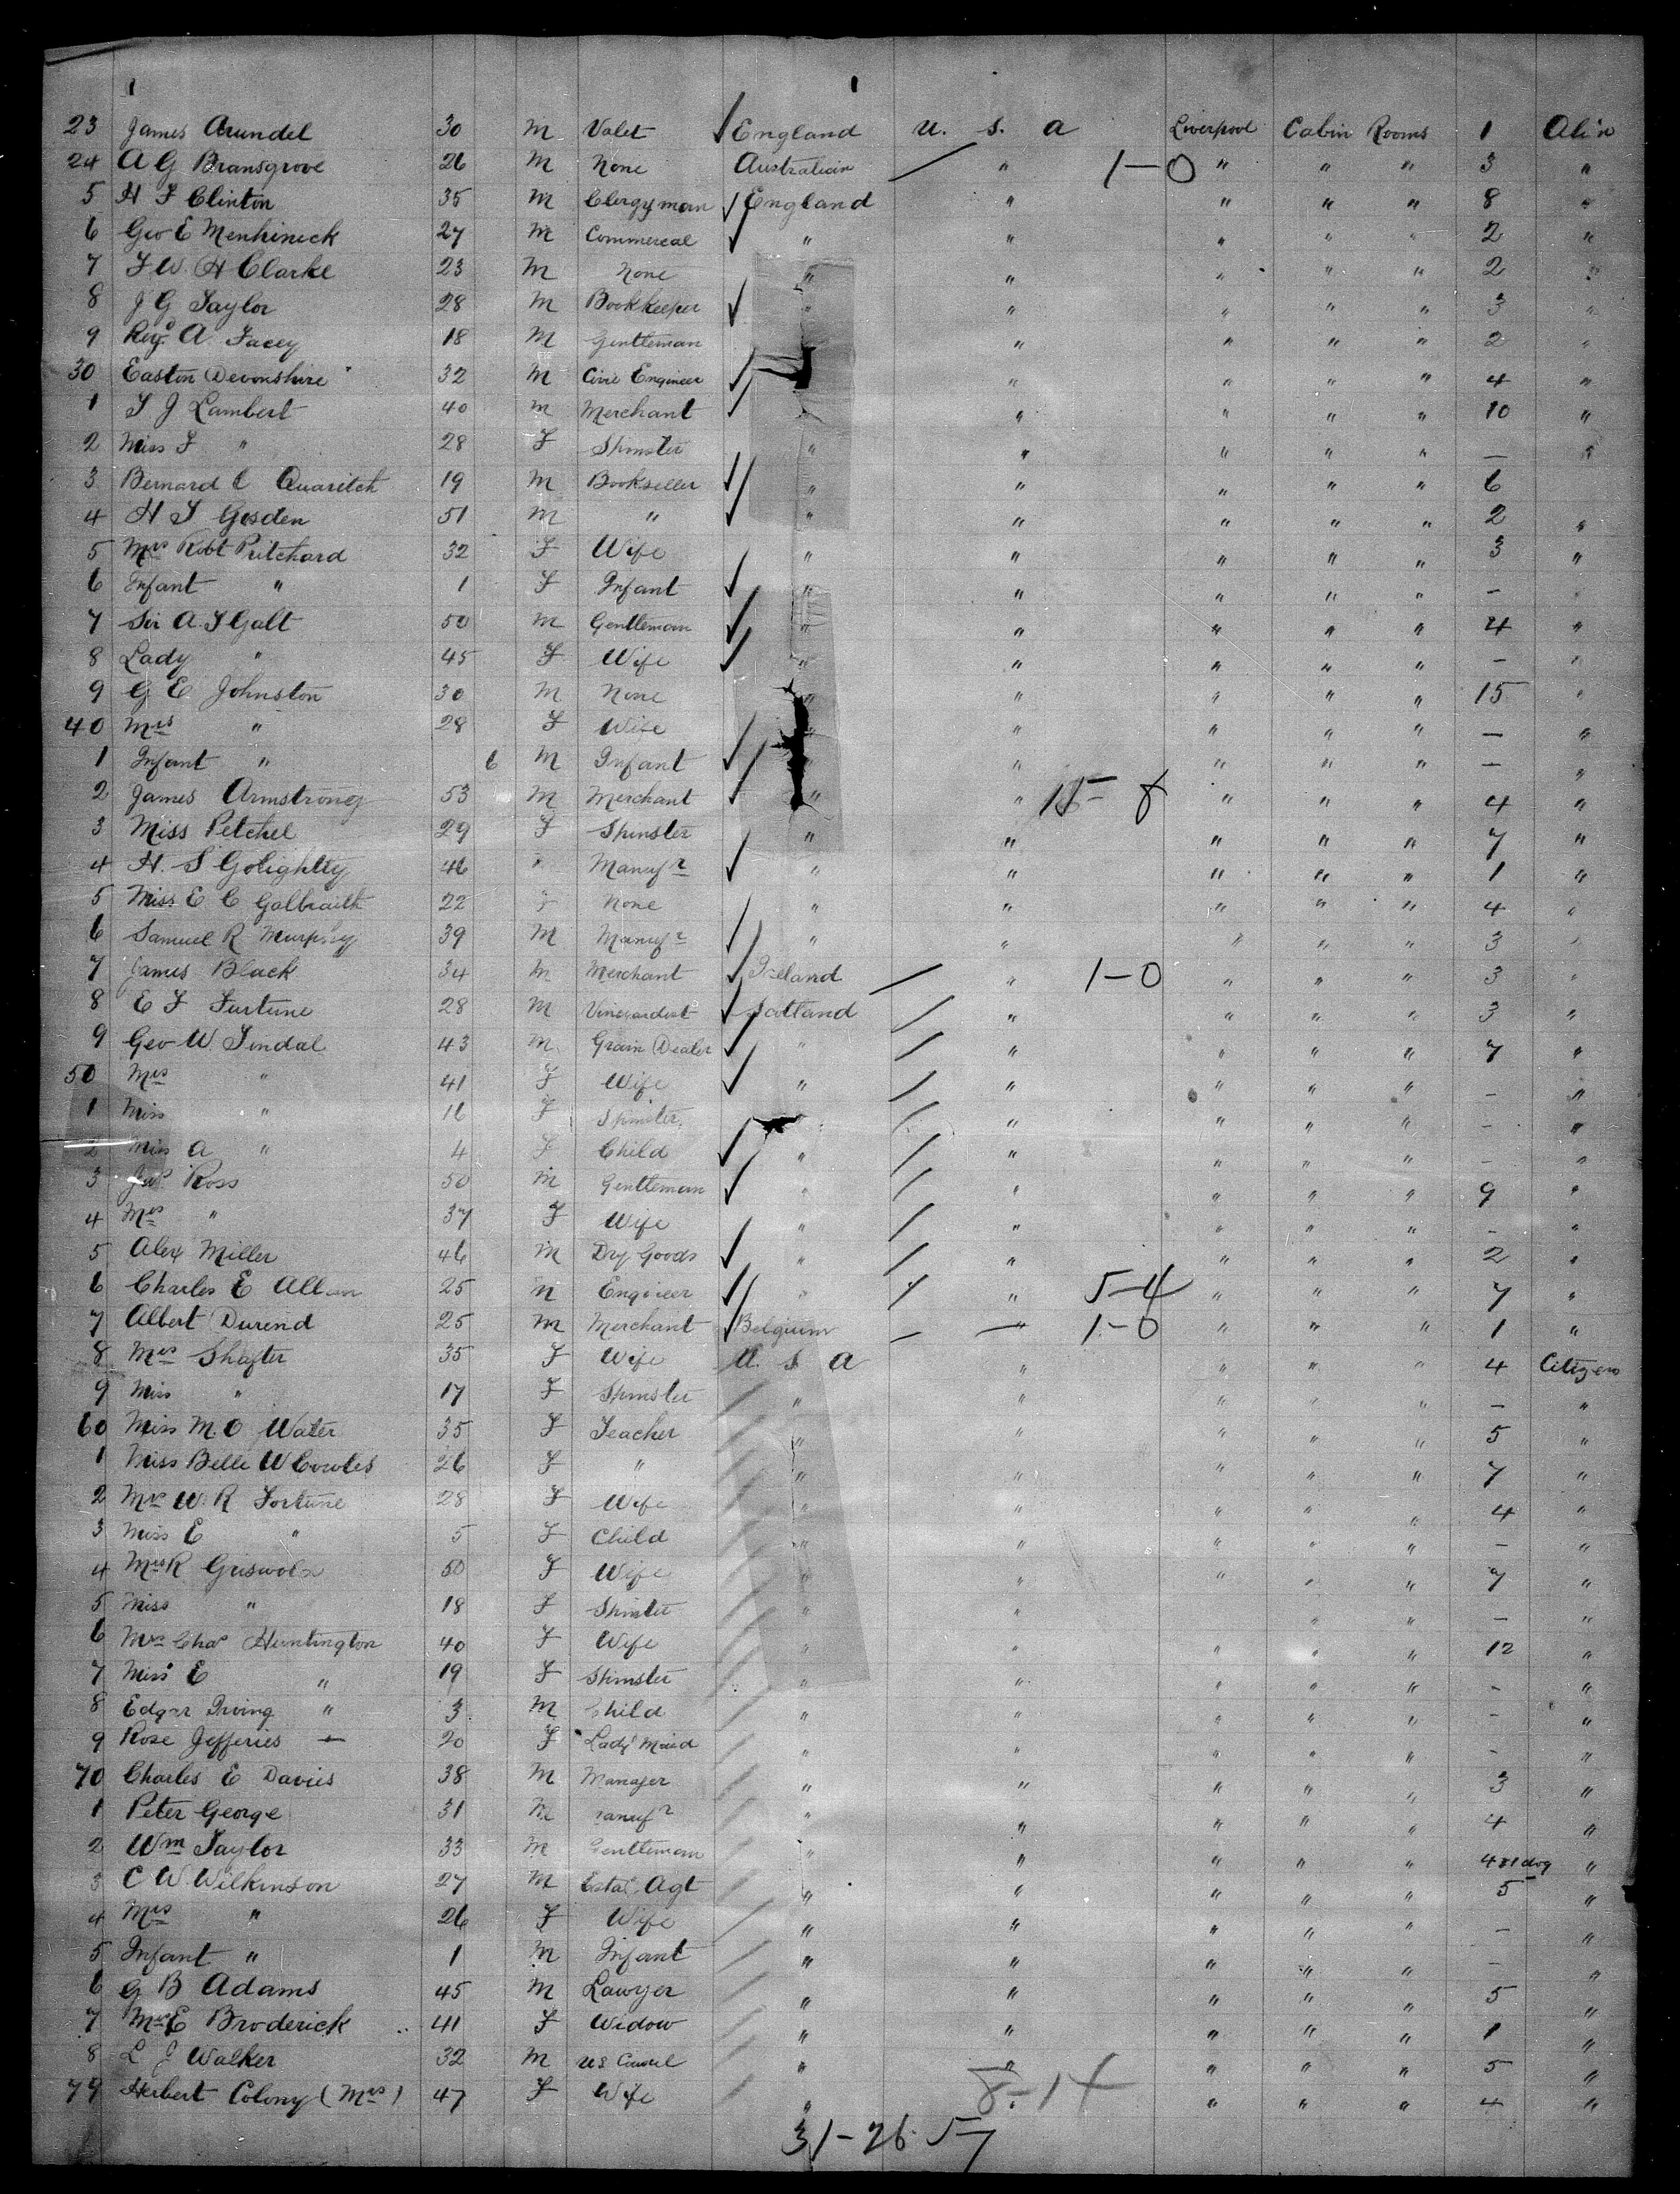 23 James Arundel 30 M Valet England U. S. A Liverpool Cabin Rooms 1 Ali'n
24 A G Bransgrove 26 M None Australian " 1-0 " " " 3 "
5 H F Clinton 35 M Clergyman England " " " " 8 "
6 Geo E Menhineck 27 M Commercal " " " " " 2 "
7 F W. H Clarke 23 M None " " " " " 2 "
8 J G Taylor 28 M Bookkeeper " " " " " 3 "
9 Regd A. Facey 18 M Gentleman " " " " 2 "
30 Easton Devonshire 32 M Civil Engineer " " " " 4 "
1 T J Lambert 40 M Merchant " " " " 10 "
2 Miss F " 28 F Spinster " " " " " — "
3 Bernard C Quaritch 19 M Bookseller " " " " " 6
4 H T Gosden 51 M " " " " " " 2 "
5 Mrs Robt Pritchard 32 F Wife " " " " " 3 "
6 Infant " 1 F Infant " " " " " -
7 Sir A. T Galt 50 M Gentleman " " " " " 4 "
8 Lady " 45 F Wife " " " " " - "
9 G. E Johnston 30 M None " " " " " 15 "
40 Mrs " 28 F Wife " " " " " — "
1 Infant " 6 M Infant " " " " — "
2 James Armstrong 53 M Merchant " " 15-8 " " " 4 "
3 Miss Petchel 29 F Spinster " " " " " 7 "
4 H. S Golightly 46 " Manufr " " " " " 1 "
5 Miss E C Galbraith 22 F None " " " " " 4 "
6 Samuel R Murphy 39 M Manufr " " " " " 3 "
7 James Black 34 M Merchant Ireland " 1-0 " " " 3 "
8 E F Furtune 28 M Vineardist Scotland " " " " 3 "
9 Geo W. Tindal 43 M Grain Dealer " " " " " 7 "
50 Mrs " 41 F Wife " " " " " - "
1 Miss " 16 F Spinster " " " " " - "
2 Miss A " 4 F Child " " " " " - "
3 Ross 50 M Gentleman " " " " " 9 "
4 Mrs " 37 F Wife " " " " " - "
5 Alex Miller 46 M Dry Goods " " " " " 2 "
6 Charles E Allan 25 M Engineer " " 5-4 " " " 7 "
7 Albert Durend 25 M Merchant Belgium " 1-0 " " " 1 "
8 Mrs Shafter 35 F Wife U. S A " " " " 4 Citizens
9 Miss " 17 F Spinster " " " " " - "
60 Miss M. O Water 35 F Teacher " " " " " 5 "
1 Miss Belle W Cowles 26 F " " " " " " 7 "
2 Mrs W. R Fortune 28 F Wife " " " " " 4 "
3 Miss E " 5 F Child " " " " " - "
4 Mrs R Griswold 50 F Wife " " " " " 7 "
5 Miss " 18 F Spinster " " " " - "
6 Mrs Chas Huntington 40 F Wife " " " " " 12 "
7 Miss E " 19 F Spinster " " " " " - "
8 Edgar Irving " 3 M Child " " " " " - "
9 Rose Jefferies — 20 F Lady Maid " " " " " - "
70 Charles E Davies 38 M Manager " " " " " 3 "
1 Peter George 31 M Manufr " " " " " 4 "
2 Wm Taylor 33 M Gentleman " " " " " 4 & 1 dog "
3 C W. Wilkinson 27 M Esta Agt " " " " " 5 "
4 Mrs " 26 F Wife " " " " " - "
5 Infant " 1 M Infant " " " " " - "
6 G B Adams 45 M Lawyer " " " " " 5 "
7 Mrs E Broderick 41 F Widow " " " " " 1 "
8 L J Walker 32 M US Consul " " " " " 5 "
79 Herbert Colony (Mrs) 47 F Wife " " 8-14 " " " 4 "
31-26 57